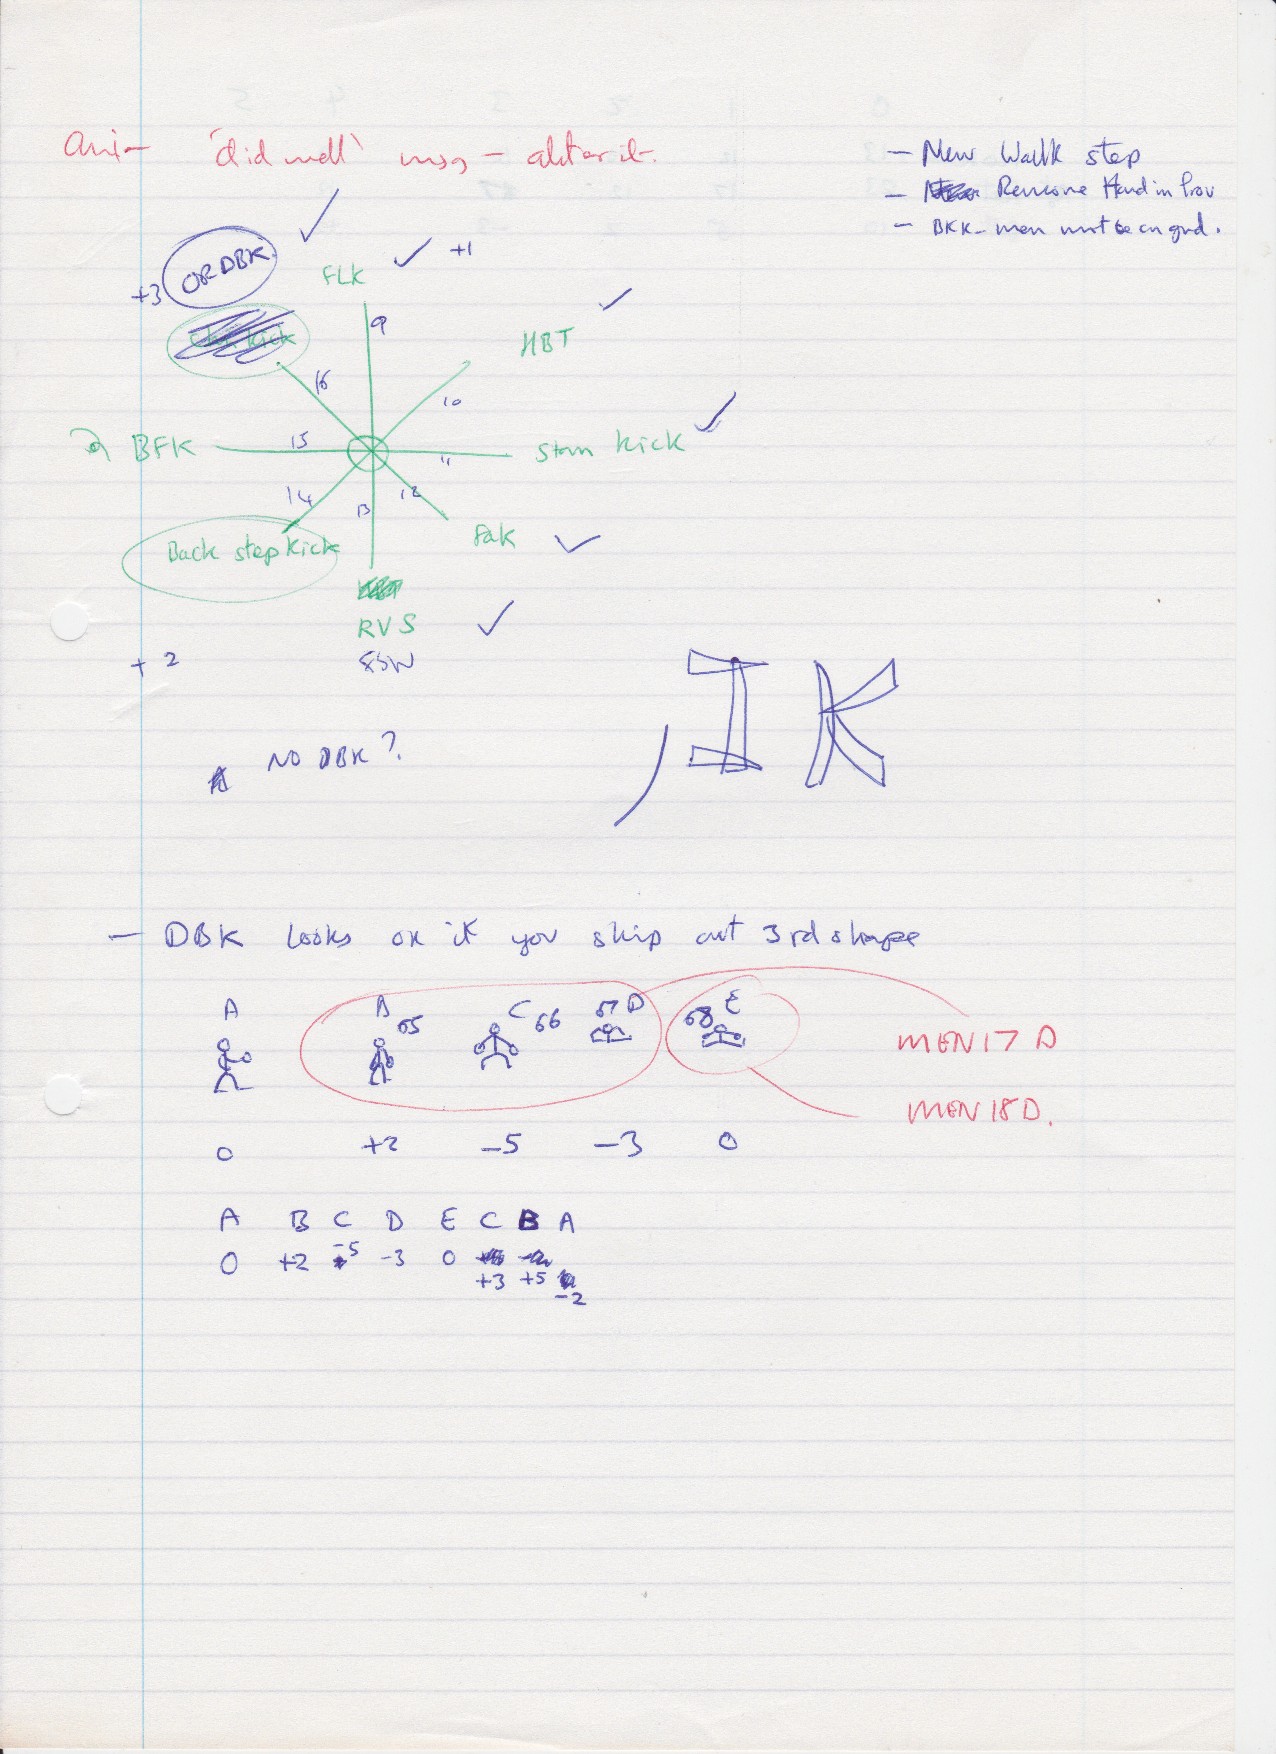 'did well' msg - alter it.
- New Walk step
- Remove Hand in Prov
- BKK - men must be on gnd.
OR DBK
+3
FLK
+1
9
HBT
16
10
BFK
15
11
Stan kick
14
13
12
Back step kick
FAK
RVS
+2
NO DBK?
JK
- DBK looks ok if you skip out 3rd shape
A B 65 C 66 67 D 68 E
MEN 17 D
MEN 18 D.
0 +2 -5 -3 0
A B C D E C B A
0 +2 -5 -3 0
+3 +5 -2